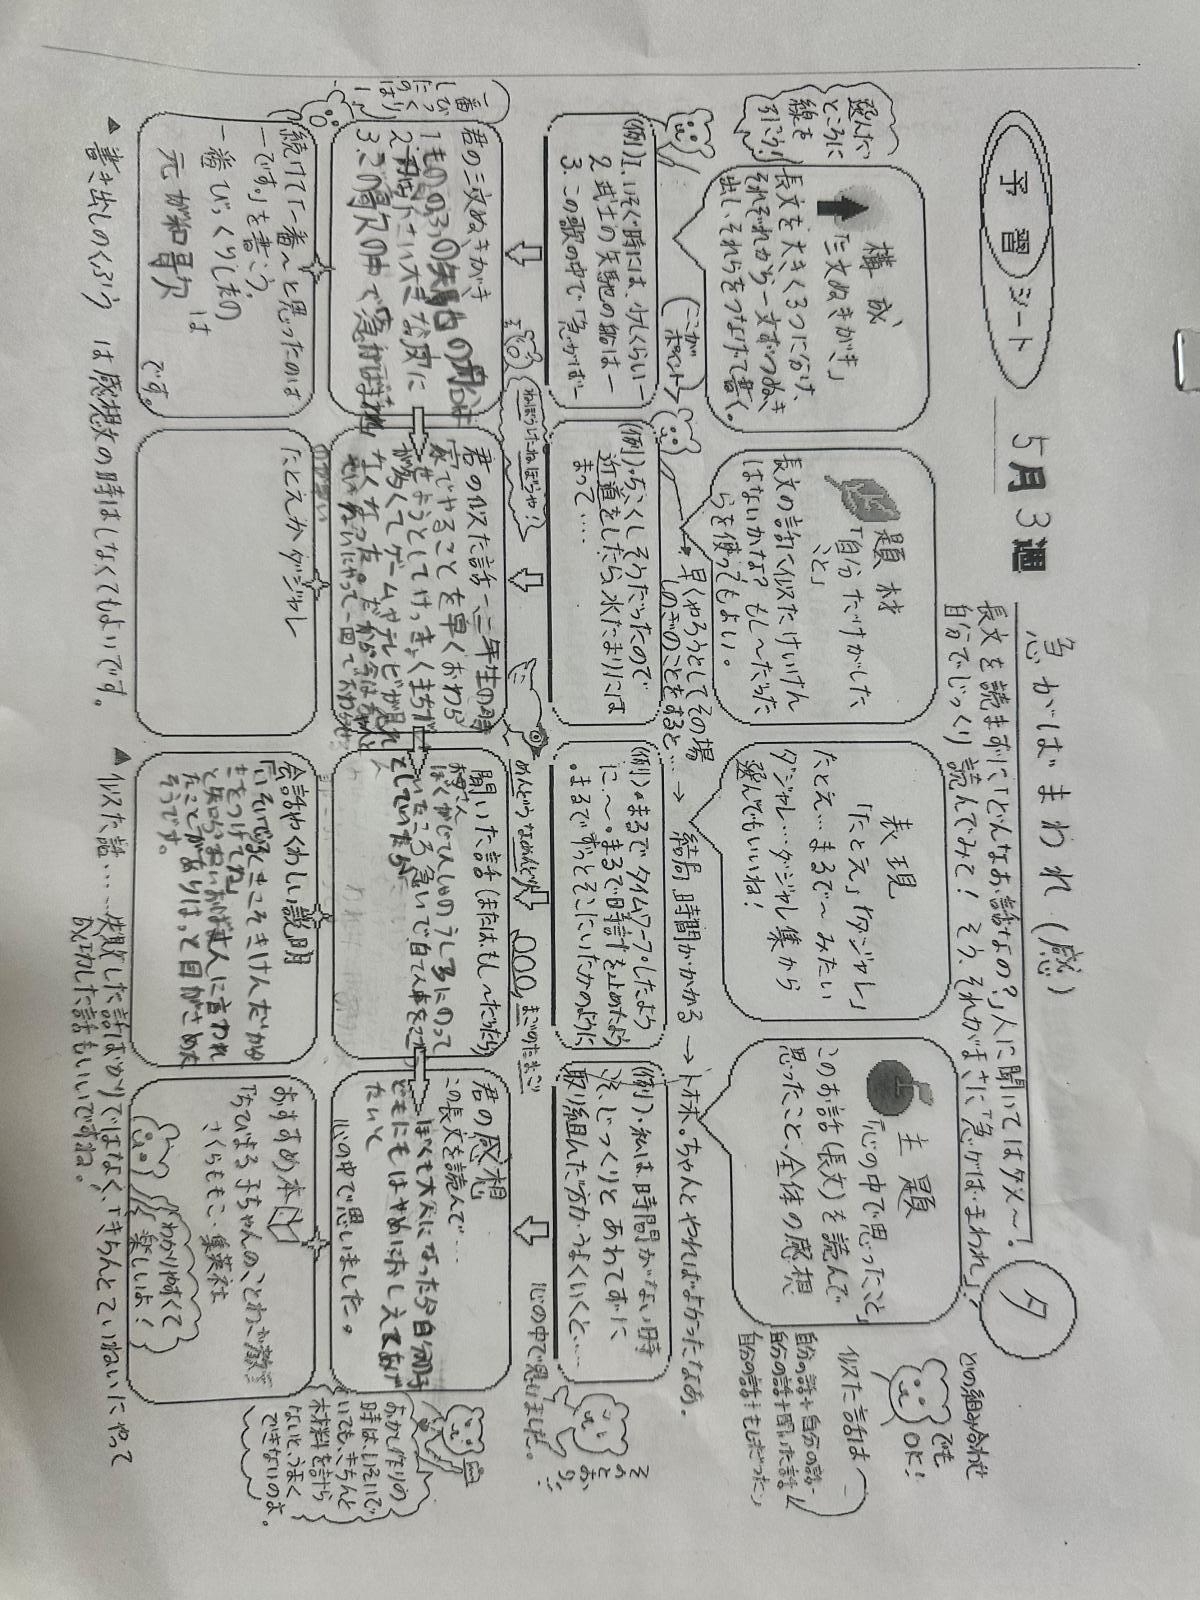 予習シート
5月3週
急がばまわれ(感)
タ
長文を読まずに「どんなお話なの?」人に聞いてはダメ〜!
自分でじっくり読んでみて!そう、それがまさに「急がば・まわれ」?
どの組み合わせ
でも
OK!
似た話は〜
自分の話+自分の話・
自分の話+聞いた話
自分の話+もしだったら
選んだ
ところに
線を
引こう!
構成
「三文ぬきがき」
長文を大きく3つに分け、
それぞれから一文ずつぬき
出し、それらをつなげて書く。
題材
「自分だけがした
こと」
長文の話に似たけいけん
はないかな?もし〜だった
らを使ってもよい。
表現
「たとえ」「ダジャレ」
たとえ…まるで〜みたい
ダジャレ…ダジャレ集から
選んでもいいね!
主題
「心の中で思ったこと」
このお話(長文)を読んで
思ったこと、全体の感想
ここが
ポイント
早くやろうとしてその場
しのぎのことをすると… → 結局、時間がかかる → トホホ。ちゃんとやればよかったなあ。
(例)1.いそぐ時には、少しくらい―
2.武士の矢馳の船は―
3.この歌の中で「急がば―
(例)・ちこくしそうだったので
近道をしたら水たまりには
まって…
(例)・まるでタイムワープしたよう
に〜・まるで時計を止めたよう
・まるでずっとそこにいたかのように
(例)・私は、時間がない時
こそ、じっくりとあわてずに
取り組んだ方がうまくいくと……
心の中で思いました。
そ
の
と
お
り!!
ねぼうしたねぼうや!
めんどうなめんどり
まごのたまご
君の三文ぬきがき
3.この歌の中で「急がば
君の似た話 一二年生の時
家でやることを早くおわら
せようとしてけっきょくまちがい
が多くてゲームやテレビが見れ
なくなった。だから今は
聞いた話(またはもし〜だったら)
お母さん
ぼくがじてんしゃのうしろにのって
いたころ急いで自てん車をこごう
としていたら
君の感想
この長文を読んで…
ぼくも大人になったら自分の子
どもにもはやめにおしえてあげ
たいと
心の中で思いました。
一番
びっく
りした
のは―
続けて「一番〜と思ったのは
―です。」を書こう。
一番びっくりしたの
は
元が和歌
です。
たとえかダジャレ
会話やくわしい説明
「いそいでるときこそきけんだから
きをつけてね」
と知らないおばさんに言われ
たことがありはっと目がさめた
そうです。
おすすめ本
「ちびまる子ちゃんのことわざ教室」
さくらももこ・集英社
わかりやすくて
楽しいよ!
おかし作りの
時は、いそいで
いても、きちんと
材料を計ら
ないと、うまく
できないのよ。
▲ 書き出しのくふう は感想文の時はしなくてもよいです。
▲ 似た話……失敗した話ばかりではなく、「きちんとていねいにやって
成功した話もいいですね!